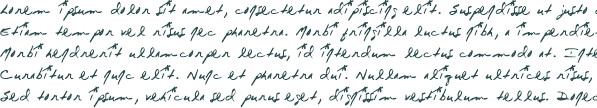 Lorem ipsum dolor sit amet, consectetur adipiscing elit. Suspendisse ut justo
Etiam tempor vel risus nec pharetra. Morbi fringilla luctus nibh, a
Morbi hendrerit ullamcorper lectus, id interdum lectus commodo at.
Curabitur et nunc elit. Nunc et pharetra dui. Nullam aliquet ultrices risus,
Sed tortor ipsum, vehicula sed purus eget, dignissim vestibulum tellus. Donec